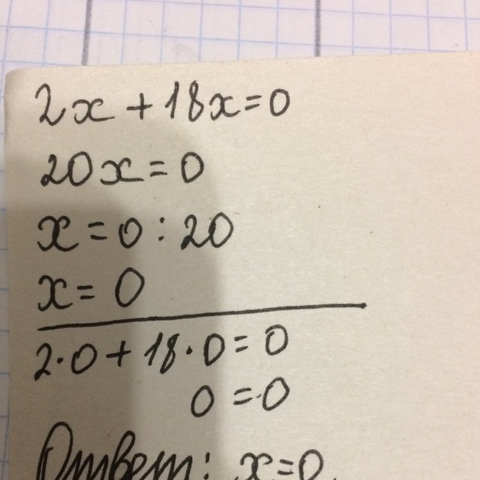 2x + 18x = 0
20x = 0
x = 0 : 20
x = 0
2·0 + 18·0 = 0
0 = 0
Ответ: x = 0.